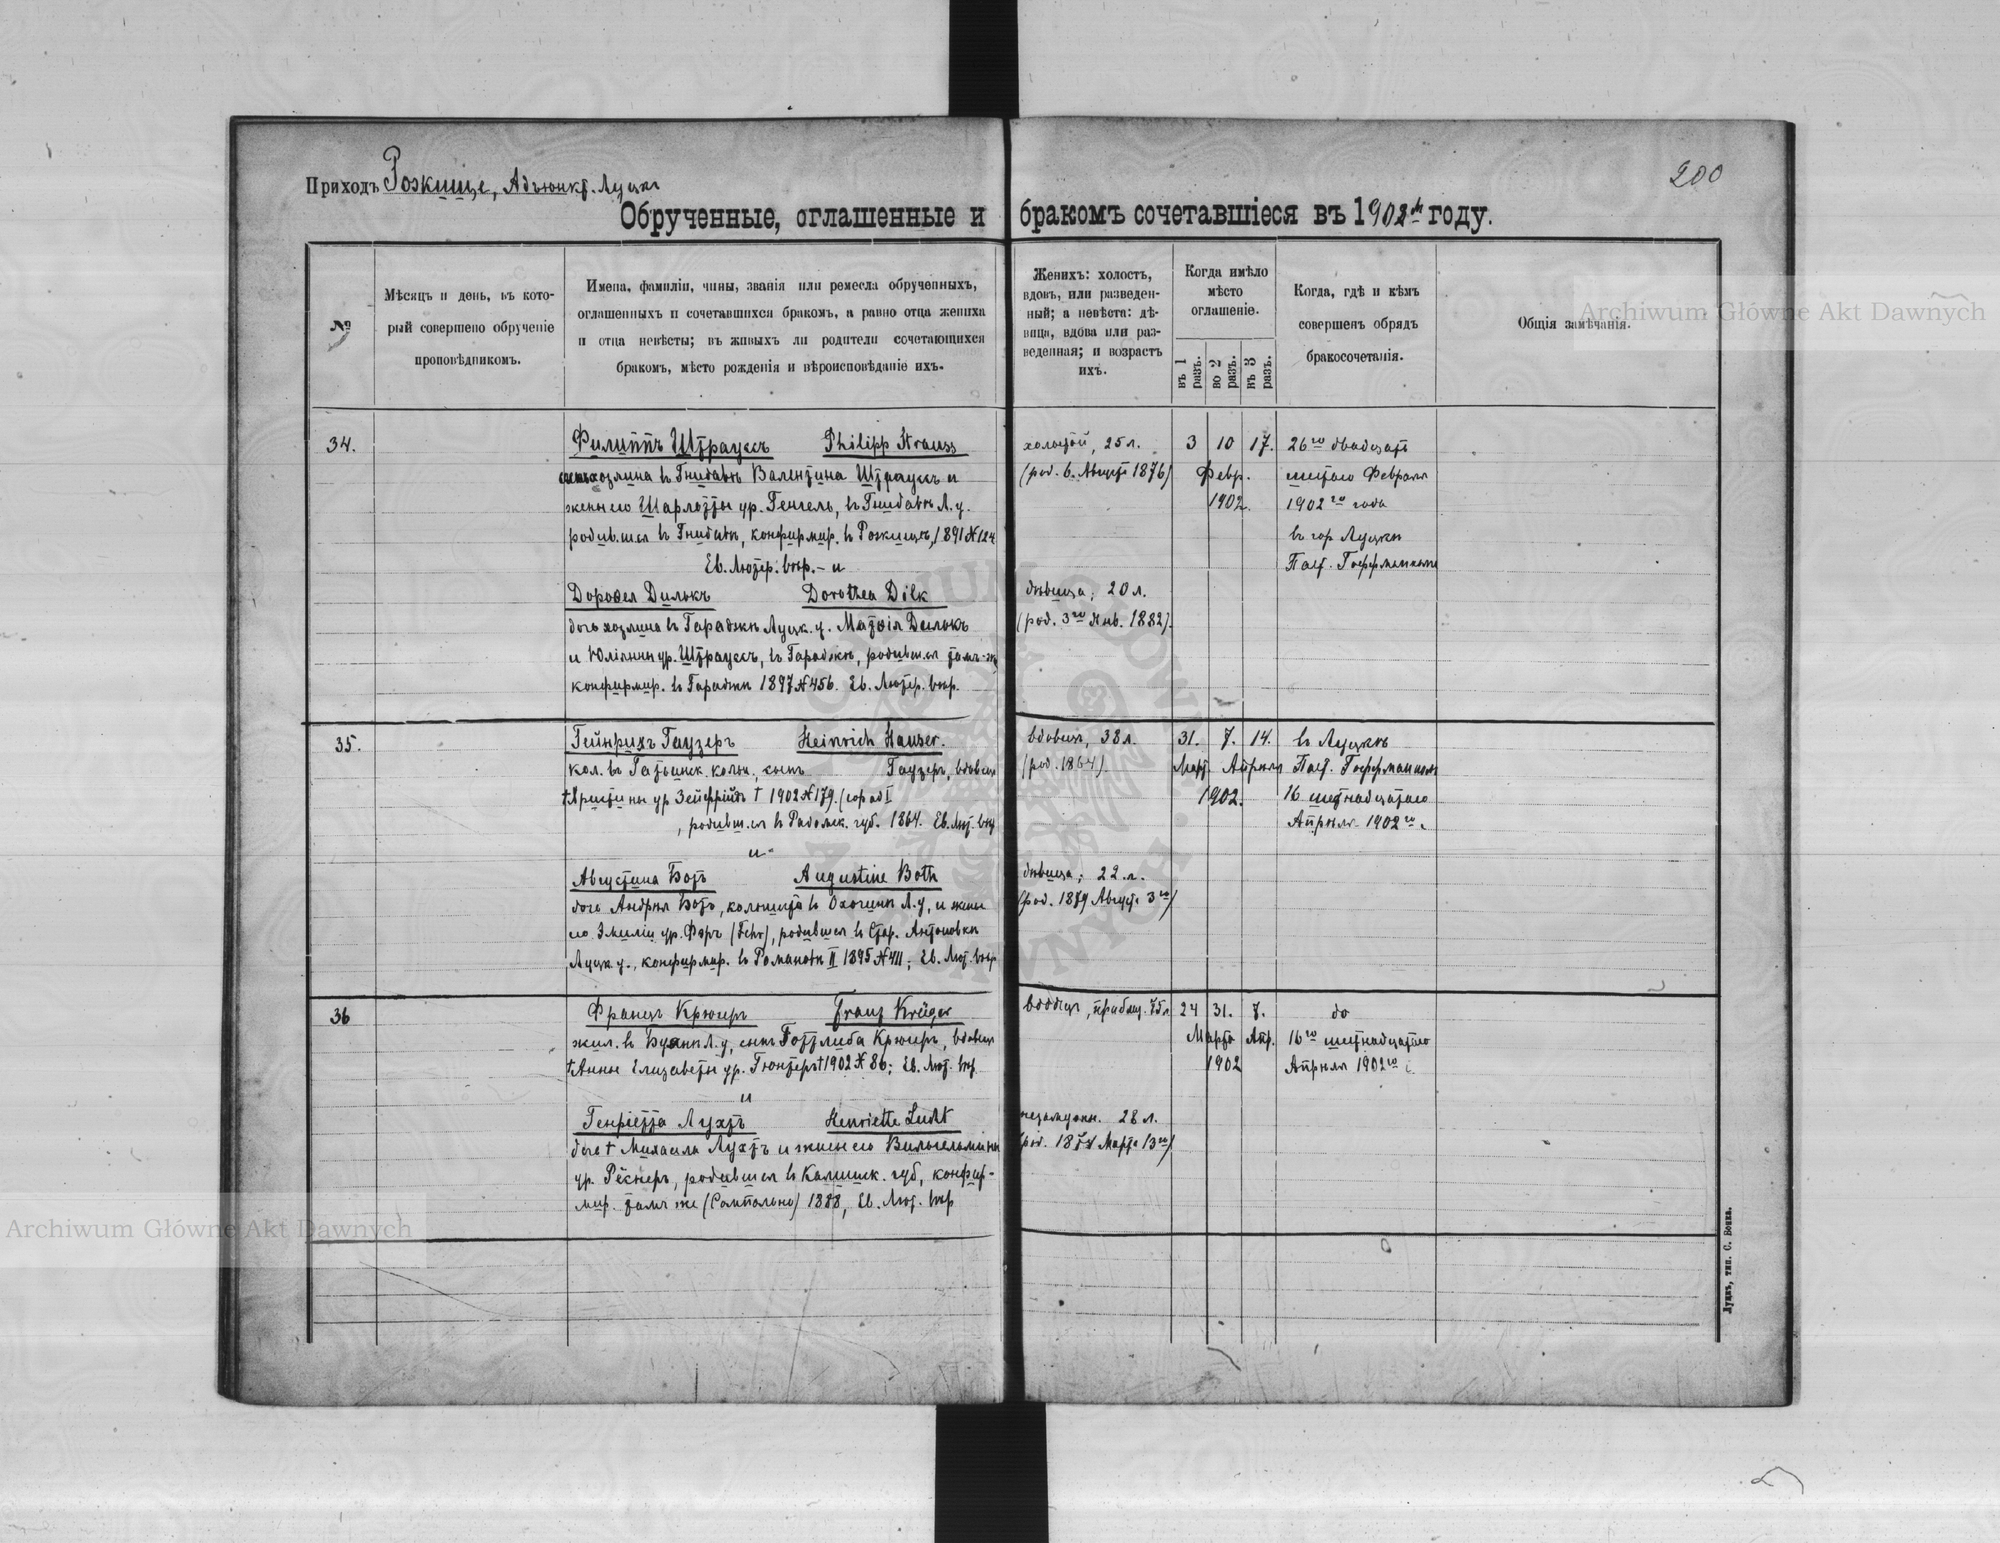 200
Приходъ Рожище, Адъюнкт. Луцкъ
Обрученные, оглашенные и бракомъ сочетавшіеся въ 1902 году.
№
Мѣсяцъ и день, въ кото-
рый совершено обрученіе
проповѣдникомъ.
Имена, фамиліи, чины, званія или ремесла обрученныхъ,
оглашенныхъ и сочетавшихся бракомъ, а равно отца жениха
и отца невѣсты; въ живыхъ ли родители сочетающихся
бракомъ, мѣсто рожденія и вѣроисповѣданіе ихъ.
Женихъ: холостъ,
вдовъ, или разведен-
ный; а невѣста: дѣ-
вица, вдова или раз-
веденная; и возрастъ
ихъ.
Когда имѣло
мѣсто
оглашеніе.
въ 1 разъ.
во 2 разъ.
въ 3 разъ.
Когда, гдѣ и кѣмъ
совершенъ обрядъ
бракосочетанія.
Общія замѣчанія.
34.
Филиппъ Штрауссъ Philipp Strauss
хозяина въ Гнидавѣ Валентина Штрауссъ и
жены его Шарлотты ур. Генгель, въ Гнидавѣ Л. у.
родивш. въ Гнидавѣ, конфирмир. въ Рожищѣ, 1891 № 124
Ев. Лютер. вѣр. – и
Доротея Дилькъ Dorothea Dilk
дочь хозяина въ Гараджѣ Луцк. у. Матвія Дилькъ
и Юліанны ур. Штрауссъ, въ Гараджѣ, родившаяся тамъ-же
конфирмир. въ Гараджѣ 1897 № 456. Ев. Лютер. вѣр.
холостой, 25 л.
(род. 6. Август 1876)
дѣвица, 20 л.
(род. 3го Янв. 1882).
3 10 17.
Февр.
1902.
26го двадцать
шестого Февраля
1902го года
въ гор Луцкѣ
Паст. Гоффманномъ
35.
Гейнрихъ Гаузеръ Heinrich Hauser.
кол. въ колон., сынъ Гаузеръ, вдовецъ
Христины ур † 1902 № 179.
, родивш. въ Радомск. губ. 1864. Ев. Лют. вѣр
и
Августина Ботъ Augustine Both
дочь Андрея Ботъ, колониста въ Л. у, и жены
его Эмиліи ур. Фэръ (Fehr), родившаяся въ Стар. Антоновкѣ
Луцк. у., конфирмир. въ Романовѣ II 1895 № 411; Ев. Лют. вѣр
вдовецъ, 38 л.
(род. 1864).
дѣвица, 22 л.
(род. 1879 Август 3го)
31. 7. 14.
Март. Апрѣля
1902.
въ Луцкѣ
Паст. Гоффманномъ
16 шестнадцатого
Апрѣля 1902го.
36
Францъ Крюгеръ Franz Krüger
жил. въ Л. у, сынъ Готтлиба Крюгеръ, вдовецъ
† Анны Елизаветы ур. Гюнтеръ † 1902 № 86; Ев. Лют. вѣр.
и
Генріетта Лухтъ Henriette Lucht
дочь † Михаила Лухтъ и жены его Вильгельмины
ур. Рёснеръ, родившаяся въ Калишск. губ, конфир-
мир. тамъ же (Сомпольно) 1888, Ев. Лют. вѣр
вдовецъ, приблиз. 75 л
незамужн. 28 л.
(род. Марта 13го)
24 31. 7.
Марта Апр.
1902
до
16го шестнадцатого
Апрѣля 1902го
Луцкъ, тип. С. Бонка.
Archiwum Główne Akt Dawnych
Archiwum Główne Akt Dawnych